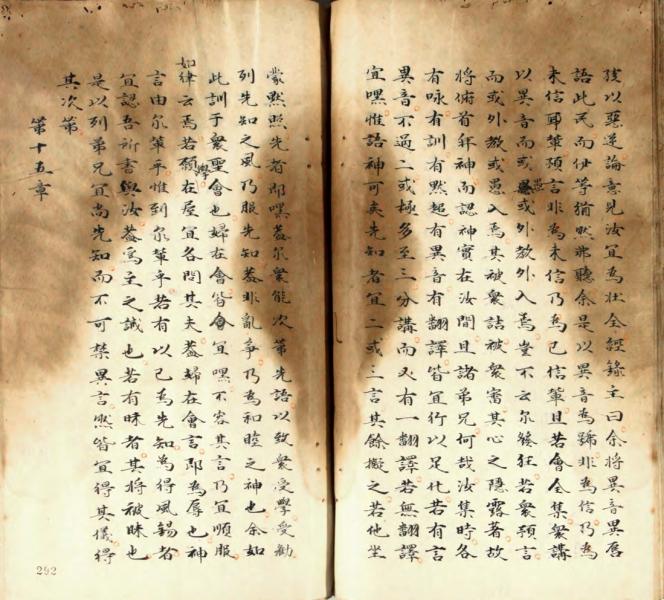 孩以惡逆論意見汝宜為壯全經錄主曰余將異音異唇
語此民而伊等猶然弗聽余是以異音為號非為信乃為
未信耶輩預言非為未信乃為已信輩且若會全集衆講
以異音而或愚或外教外入焉豈不云尔發狂若衆預言
而或外教或愚入焉其被衆詰被衆審其心之隱露著故
將俯首拜神而認神實在汝間且諸弟兄何哉汝集時各
有咏有訓有默超有異音有翻譯皆宜行以足化若有言
異音不過二或極多至三分講而又有一翻譯若無翻譯
宜嘿惟語神可矣先知者宜二或三言其餘擬之若他坐
蒙默照先者即嘿蓋尔衆能次第先語以致衆受學受勸
列先知之風乃服先知蓋非亂爭乃為和睦之神也余如
此訓于衆聖會也婦在會皆會宜嘿不容其言乃宜順服
如律云焉若願學在屋宜各問其夫蓋婦在會言即為辱也神
言由尔輩乎惟到尔輩乎若有以己為先知為得風錫者
宜認吾所書與汝蓋為主之誡也若有昧者其將被昧也
是以列弟兄宜尚先知而不可禁異言然皆宜得其儀得
其次第
第十五章
292